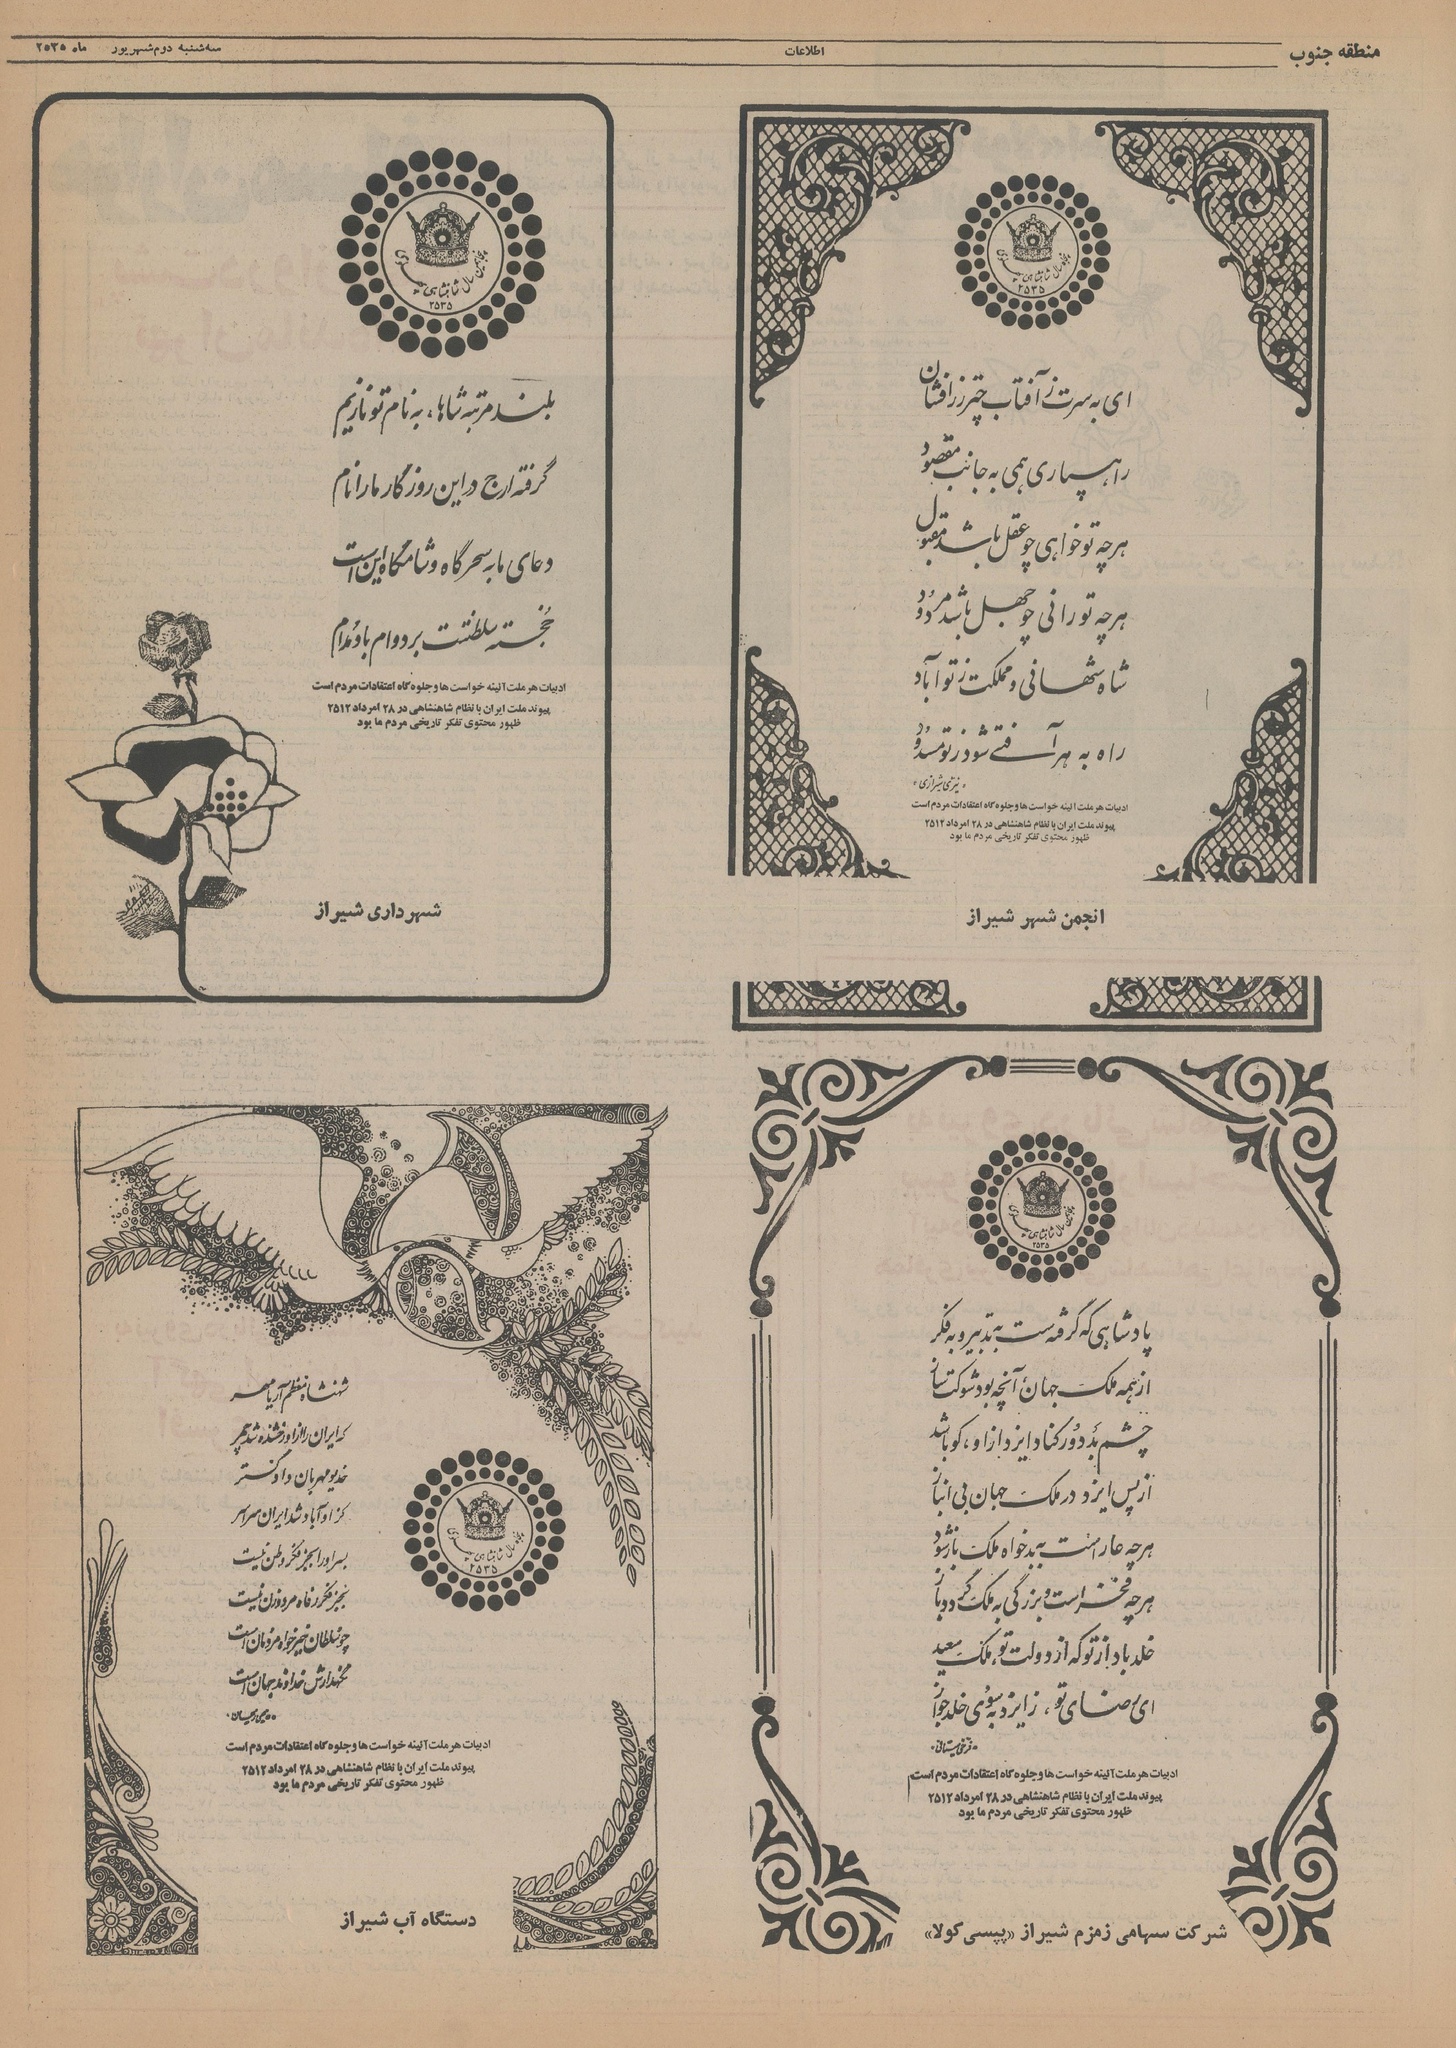 منطقه جنوب
اطلاعات
سه‌شنبه دوم شهریور ماه ۲۵۳۵
پنجاهمین سال شاهنشاهی پهلوی
۲۵۳۵
ای به سرت ز آفتاب چتر زرافشان
راهسپاری همی به جانب مقصود
هرچه تو خواهی چو عقل باشد مقبول
هرچه تو رانی چو جهل باشد مردود
شاه شهانی و مملکت ز تو آباد
راه به هر آفتی شود ز تو مسدود
ادبیات هر ملت آئینه خواست ها و جلوه گاه اعتقادات مردم است
پیوند ملت ایران با نظام شاهنشاهی در ۲۸ امرداد ۲۵۱۲
ظهور محتوی تفکر تاریخی مردم ما بود
انجمن شهر شیراز
پنجاهمین سال شاهنشاهی پهلوی
۲۵۳۵
بلند مرتبه شاها، به نام تو نازیم
گرفته ارج در این روزگار ما را نام
دعای ما به سحرگاه و شامگاه این است
خجسته سلطنتت بر دوام باد و مدام
ادبیات هر ملت آئینه خواست ها و جلوه گاه اعتقادات مردم است
پیوند ملت ایران با نظام شاهنشاهی در ۲۸ امرداد ۲۵۱۲
ظهور محتوی تفکر تاریخی مردم ما بود
شهرداری شیراز
پنجاهمین سال شاهنشاهی پهلوی
۲۵۳۵
پادشاهی که گرفته ست به تدبیر و به فکر
از همه ملک جهان آنچه بود شوکت ساز
چشم بد دور کناد ایزد از او، کو باشد
از پس ایزد در ملک جهان بی انباز
هرچه عار است به بدخواه ملک باز شود
هرچه فخر است و بزرگی به ملک گردد باز
خلد باد از تو که از دولت تو، ملک سعید
ای رضای تو، ز ایزد به سوی خلد جواز
«فرخی سیستانی»
ادبیات هر ملت آئینه خواست ها و جلوه گاه اعتقادات مردم است
پیوند ملت ایران با نظام شاهنشاهی در ۲۸ امرداد ۲۵۱۲
ظهور محتوی تفکر تاریخی مردم ما بود
شرکت سهامی زمزم شیراز «پپسی کولا»
شهنشاه معظم آریامهر
که ایران را از او رخشنده شد چهر
خدیو مهربان دادگستر
کز او آباد شد ایران سراسر
بسر او را بجز فکر وطن نیست
بجز فکر رفاه مرد و زن نیست
چو سلطان خیرخواه مردمان است
نگهدارش خداوند جهان است
پنجاهمین سال شاهنشاهی پهلوی
۲۵۳۵
ادبیات هر ملت آئینه خواست ها و جلوه گاه اعتقادات مردم است
پیوند ملت ایران با نظام شاهنشاهی در ۲۸ امرداد ۲۵۱۲
ظهور محتوی تفکر تاریخی مردم ما بود
دستگاه آب شیراز